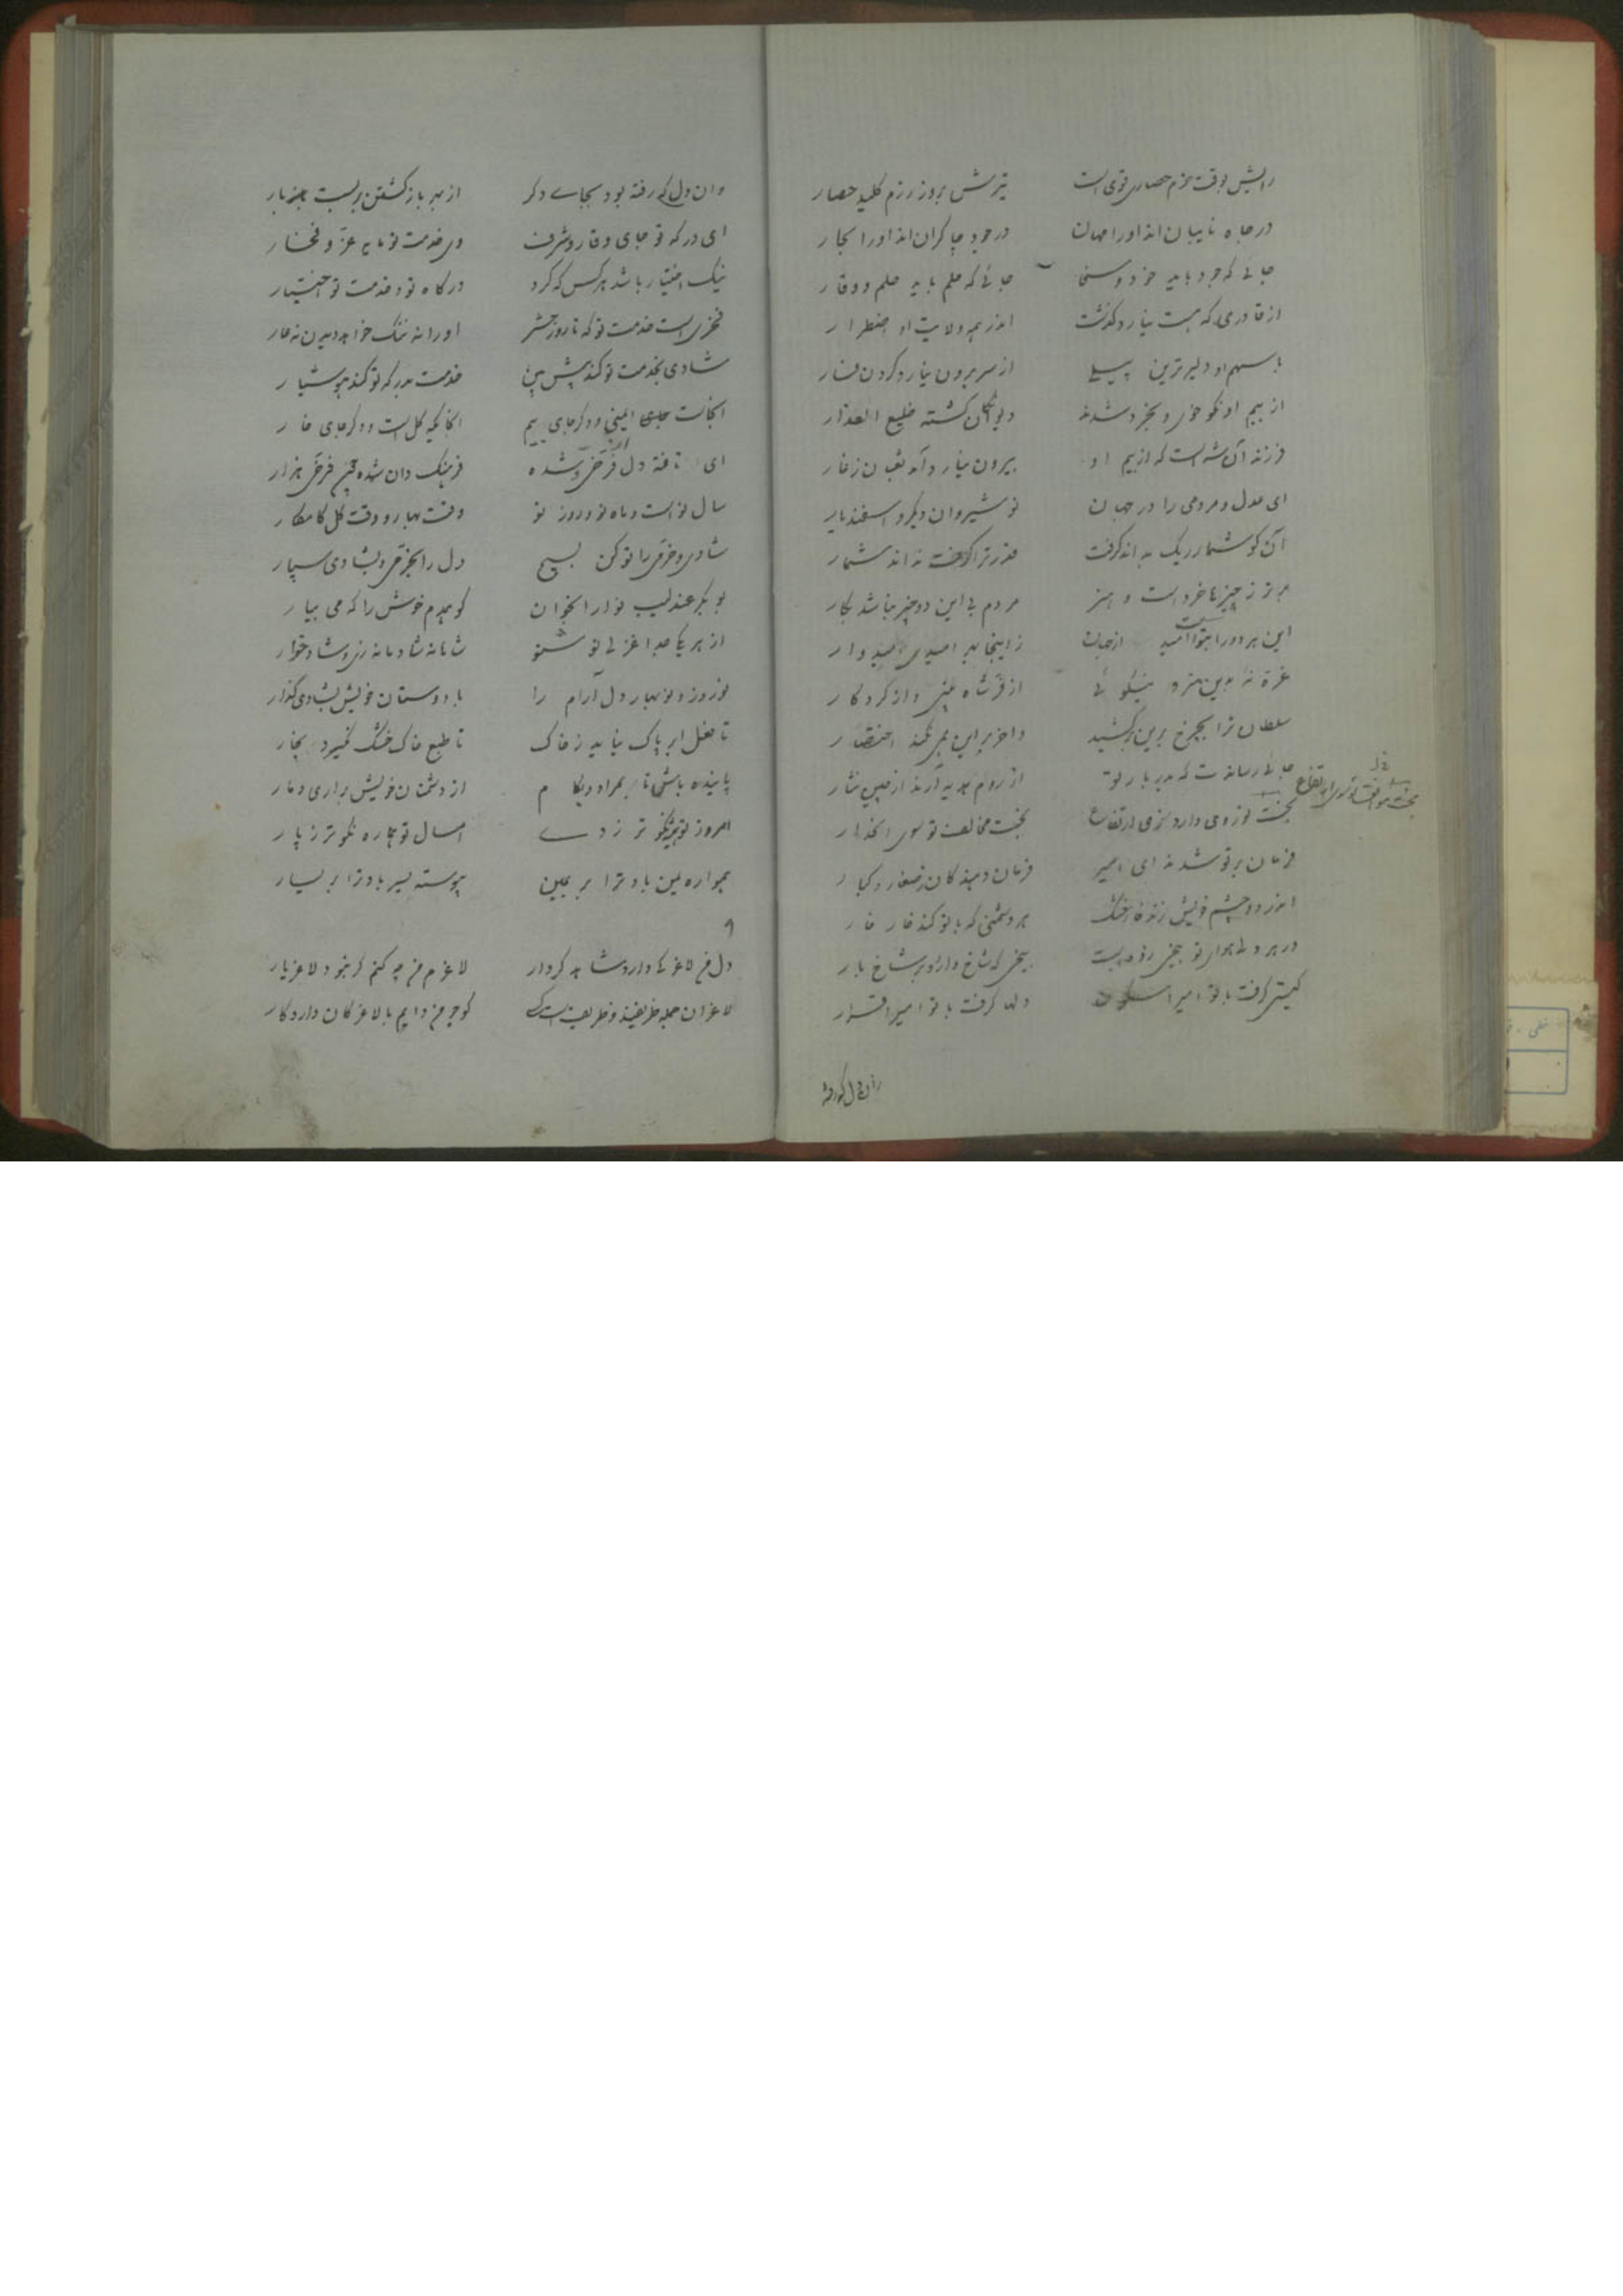 رایش بوقت بزم حصاری قوی است    تیرش بروز رزم کلید حصار
در جاه نایبان اند او را مهان    در جود چاکران اند او را بحار
جائے که جود باید جود و سخا    جائے که حلم باید حلم و وقار
از قادری که هست نیارد گذشت    اندر همه ولایت او اضطرار
با سهم او دلیرترین پیلے    از سر برون نیارد کردن فسار
از بیم او نکو خوی و بخرد شدند    دیوانگان گشته خلیع العذار
فرزند آن شه است که از بیم او    بیرون نیارد آمد ثعبان ز غار
ای عدل و مردمی را در جهان    نوشیروان دیگر و اسفندیار
آن کو شمار ریک بداند گرفت    قدر ترا گرفت نداند شمار
برتر ز چیزها خرد است و هنر    مردم بی این دو چیز نیاید بکار
این هر دو را بتو امید است از جهان    ز اینجا بهر امیدی امیدوار
غره نه بدین هنر و نیکوئے    از فر شاه بینی و از کردگار
سلطان ترا بچرخ برین برکشید    و اخر بر این بهی نکند اختصار
جائے رساندت که بدربار تو    از روم هدیه آرند از چین نثار
بخت تو روی دارد زی ارتفاع    بخت مخالفت توسوی انحدار
فرمان بر تو شدند ای امیر    فرمان دهندگان صغار و کبار
اندر دو چشم خویش زند خار خشک    هر دشمنی که با تو کند خار خار
در هر دلے هوای تو بیخی زده است    بیخی که شاخ دارد و بر شاخ بار
گیتی گرفت با تو امیرا سکون    دلها گرفت با تو امیرا قرار
وان دل که رفته بود بجاے دگر    از بهر بازگشتن بربست بار
ای درگه تو جای وقار و شرف    وی خدمت تو مایه عز و فخار
نیک اختیار باشد هر کس که کرد    درگاه تو و خدمت تو اختیار
فخری است خدمت تو که تا روز حشر    او را نه ننگ خواهد دیدن نه عار
شادی بخدمت تو کند پیش بین    خدمت بدرگه تو کند هوشیار
اینجاست جای ایمنی و دگر جای بیم    اینجا تکیه گل است و دگر جای خار
ای تافته دل فرخی شده    فرهنگ دان شده چنین فرخی هزار
سال نو است و ماه نو و روز نو    وقت بهار و وقت گل کامکار
شادی و خرمی را نو کن بسیج    دل را بخرمی و بشادی سپار
بوبکر عندلیب نوا را بخوان    گو همدم خوش را که می بیار
از هر یکی جدا غزلے نو شنو    شاهانه شادمانه زی و شادخوار
نوروز و نوبهار دل آرام را    با دوستان خویش بشادی گذار
تا فعل ابر پاک نیاید ز خاک    تا طبع خاک خشک نگیرد بخار
پاینده باش تا بمراد و بکام    از دشمنان خویش براری دمار
امروز تو نکو تر ز دے    امسال تو هماره نکوتر ز پار
همواره یمن باد ترا بر یمین    پیوسته یسر باد ترا بر یسار
دل من لاغرکے دارد شاهد کردار    لاغرم من چه کنم گر نبود لاغر یار
لاغران جمله ظریفند و ظریف است کسے    کو چو من دایم با لاغرکان دارد کار
وان دل که رفته